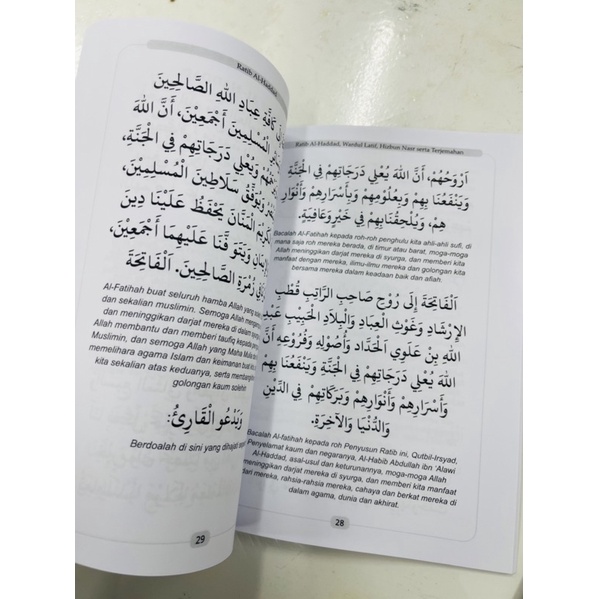 Ratib Al-Haddad, Wardul Latif, Hizbun Nasr serta Terjemahan
اَرْوَحُهُمْ، أَنَّ اللهَ يُعْلِي دَرَجَاتِهِمْ فِي الْجَنَّةِ
وَيَنْفَعُنَا بِهِمْ وَبِعُلُومِهِمْ وَبِأَسْرَارِهِمْ وَأَنْوَارِ
هِمْ، وَيُلْحِقُنَابِهِمْ فِي خَيْرٍ وَعَافِيَةٍ.
Bacalah Al-Fatihah kepada roh-roh penghulu kita ahli-ahli sufi, di
mana saja roh mereka berada, di timur atau barat, moga-moga
meninggikan darjat mereka di syurga, dan memberi kita
manfaat dengan mereka, ilmu-ilmu mereka dan golongan kita
bersama mereka dalam keadaan baik dan afiah.
اَلْفَاتِحَةَ إِلَى رُوْحِ صَاحِبِ الرَّاتِبِ قُطْبِ
الإِرْشَادِ وَغَوْثِ الْعِبَادِ وَالْبِلَادِ الْحَبِيْبِ عَبْدِ
اللهِ بِنْ عَلَوِي الْحَدَّاد وَأُصُوْلِهِ وَفُرُوْعِهِ أَنَّ
اللهَ يُعْلِي دَرَجَاتِهِمْ فِي الْجَنَّةِ وَيَنْفَعُنَا بِهِمْ
وَأَسْرَارِهِمْ وَأَنْوَارِهِمْ وَبَرَكَاتِهِمْ فِي الدِّيْنِ
وَالدُّنْيَا وَالآخِرَةِ.
Bacalah Al-fatihah kepada roh Penyusun Ratib ini, Qutbil-Irsyad,
Penyelamat kaum dan negaranya, Al-Habib Abdullah ibn 'Alawi
Al-Haddad, asal-usul dan keturunannya, moga-moga Allah
meninggikan darjat mereka di syurga, dan memberi kita manfaat
dari mereka, rahsia-rahsia mereka, cahaya dan berkat mereka di
dalam agama, dunia dan akhirat.
28
Ratib Al-Haddad
كَافَّةِ عِبَادِ اللهِ الصَّالِحِيْنَ
الْمُسْلِمِيْنَ أَجْمَعِيْنَ، أَنَّ اللهَ
وَيُعْلِي دَرَجَاتِهِمْ فِي الْجَنَّةِ،
وَيُوَفِّقُ سَلَاطِيْنَ الْمُسْلِمِيْنَ،
الْمَنَّانَ يَحْفَظُ عَلَيْنَا دِيْنَ
وَيَتَوَفَّنَا عَلَيْهِمَا أَجْمَعِيْنَ،
فِي زُمْرَةِ الصَّالِحِيْنَ. اَلْفَاتِحَةَ
Al-Fatihah buat seluruh hamba Allah yang
dan sekalian muslimin. Semoga Allah
dan meninggikan darjat mereka di dalam
Allah membantu dan memberi taufiq kepada
Muslimin, dan semoga Allah yang Maha Mulia
memelihara agama Islam dan keimanan buat
kita sekalian atas keduanya, serta
golongan kaum soleh
وَيَدْعُو الْقَارِئُ:
Berdoalah di sini yang dihajat
29